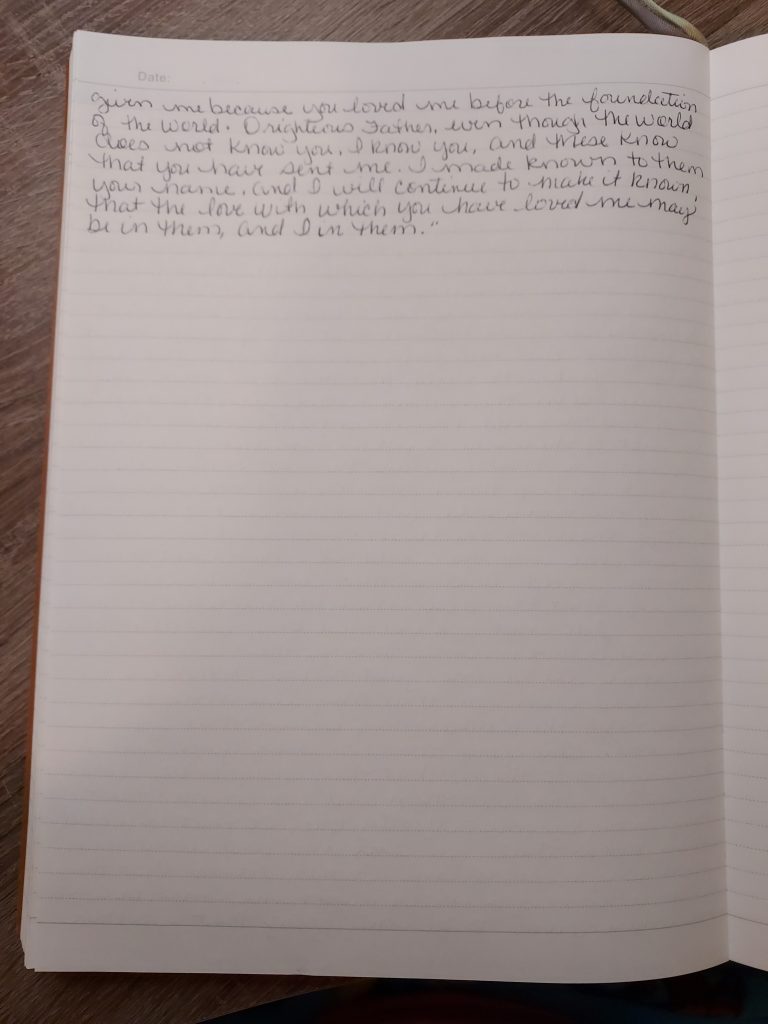 Date:
given me because you loved me before the foundation
of the world. O righteous Father, even though the world
does not know you, I know you, and these know
that you have sent me. I made known to them
your name, and I will continue to make it known,
that the love with which you have loved me may
be in them, and I in them."